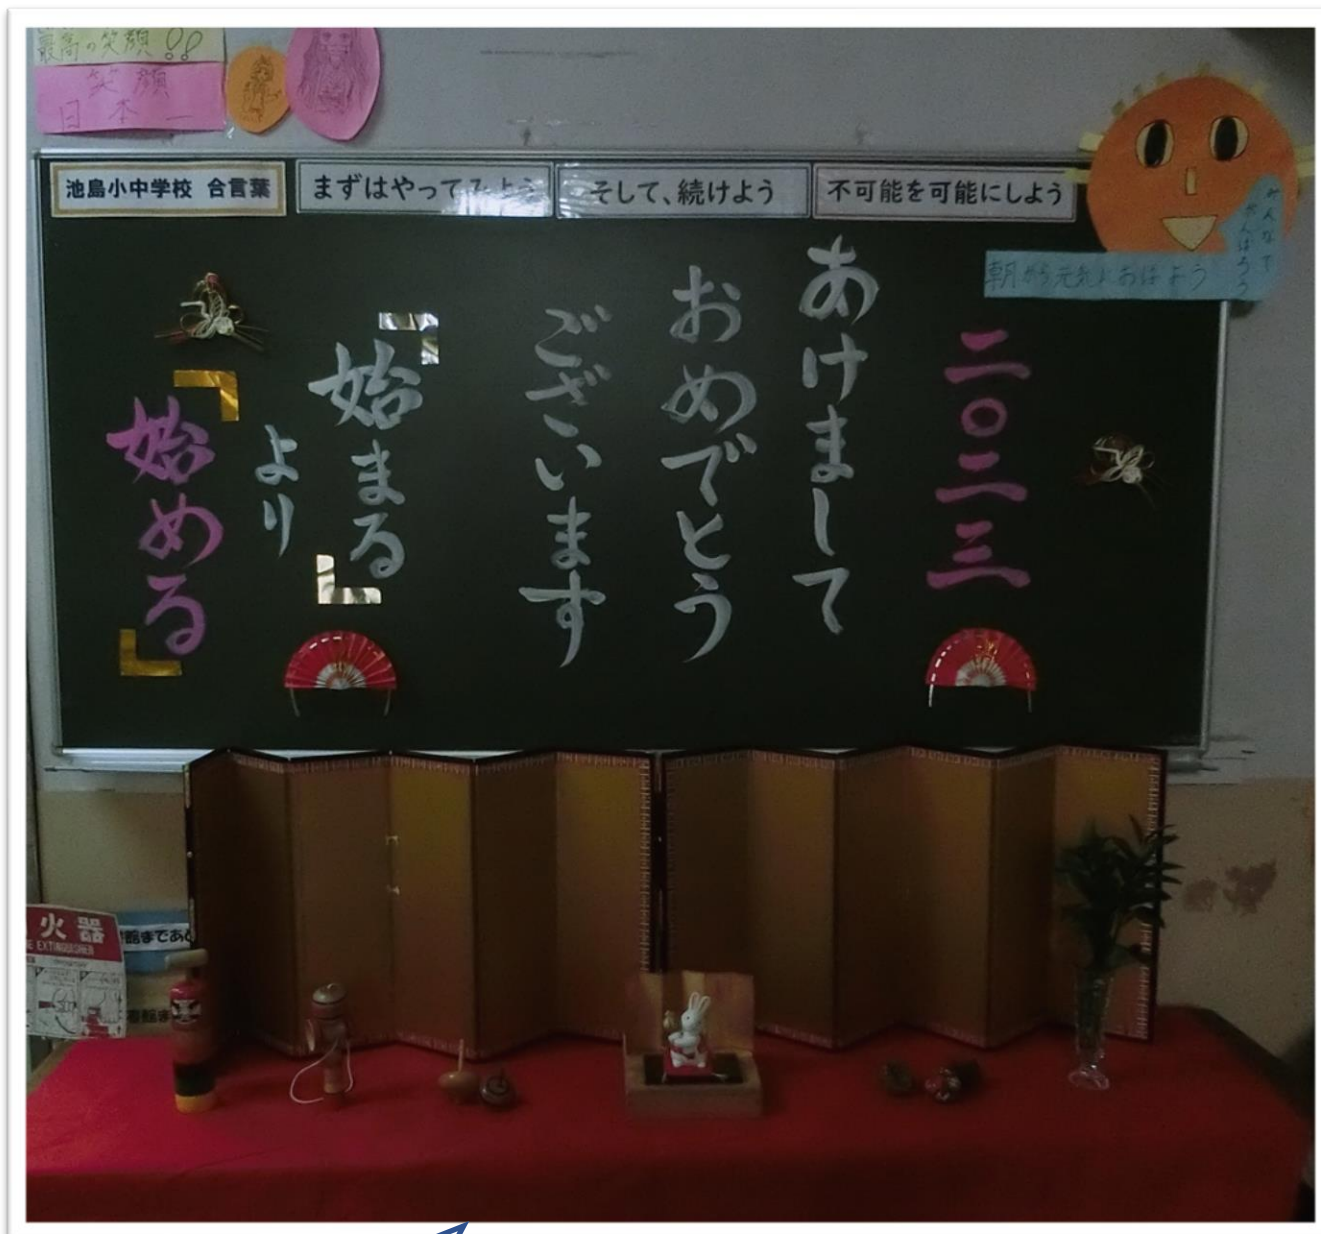 最高の笑顔!!
笑顔
日本一
池島小中学校 合言葉
まずはやってみよう
そして、続けよう
不可能を可能にしよう
みんなで
がんばろう
朝から元気におはよう
二〇二三
あけまして
おめでとう
ございます
「始まる」
より
「始める」
火器
EXTINGUISHER